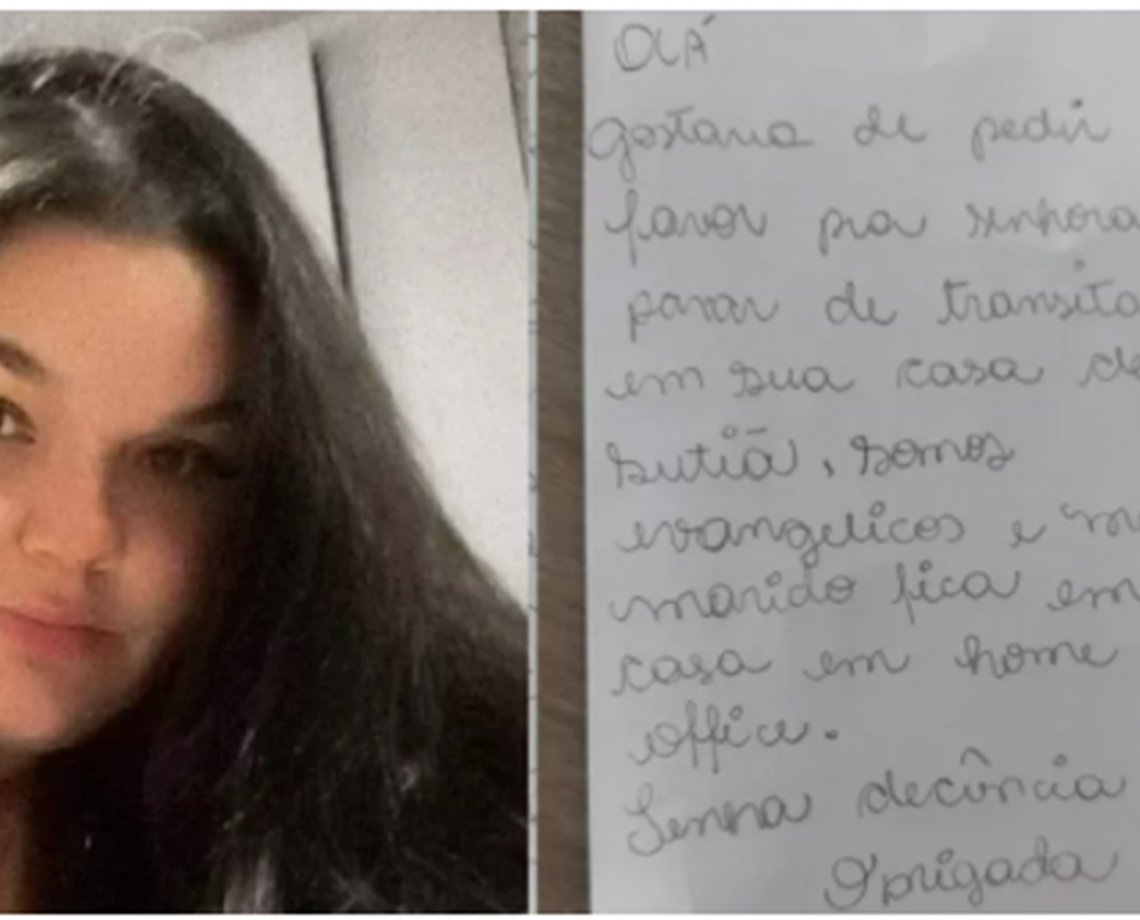 OLÁ
gostaria de pedir
favor pra senhora
parar de transita
em sua casa de
sutiã, somos
evangelicos e m
marido fica em
casa em home
office.
Tenha decência
Obrigada